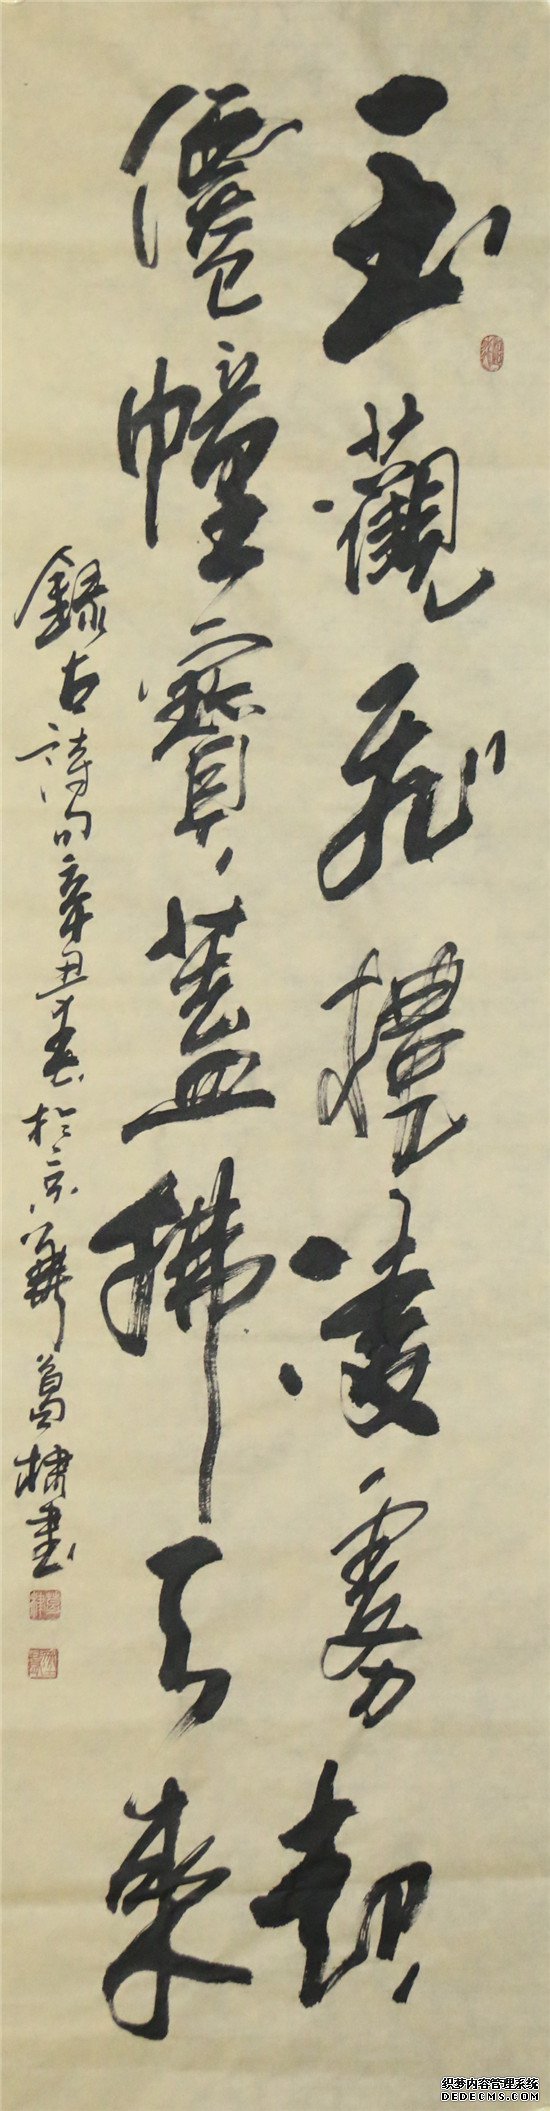 玉觀飛攙凌霧起
僊幢寶蓋拂天來
錄古詩句辛丑春於京華葛棣書
织梦内容管理系统
DEDECMS.COM